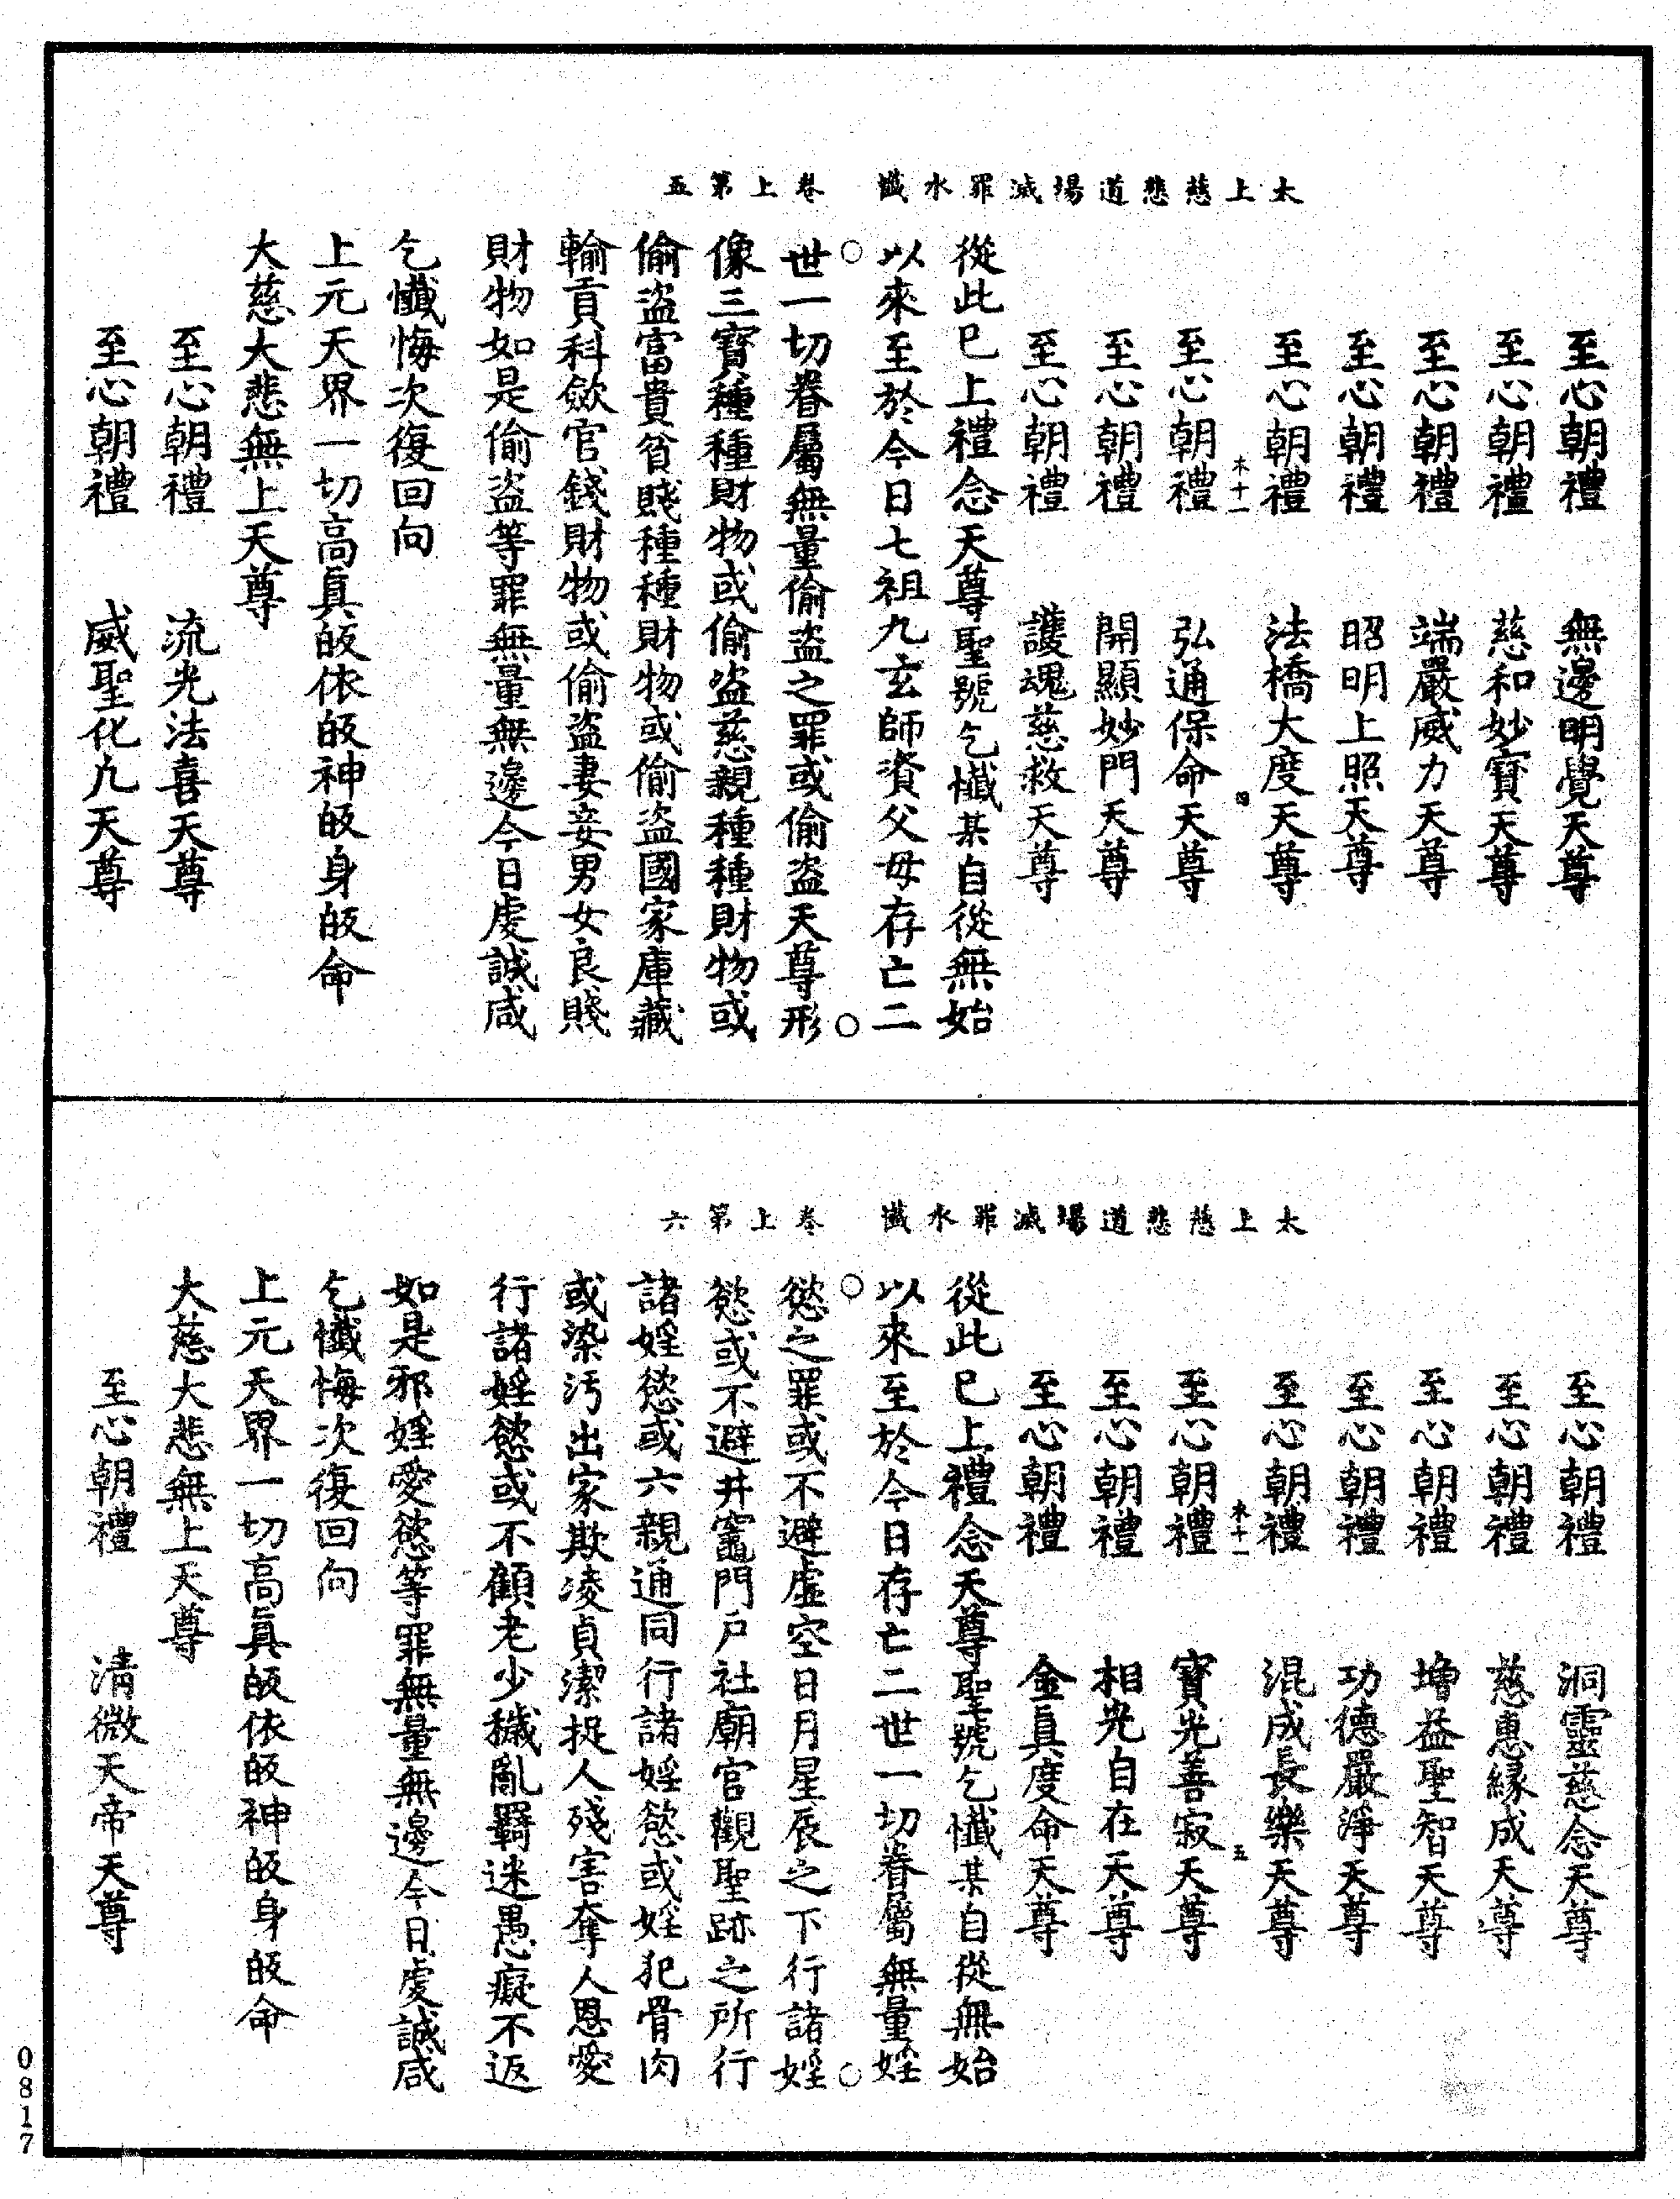 太上慈悲道場滅罪水懺　卷上第五
至心朝禮　無邊明覺天尊
至心朝禮　慈和妙寶天尊
至心朝禮　端嚴威力天尊
至心朝禮　昭明上照天尊
至心朝禮　法橋大度天尊
木十一　四
至心朝禮　弘通保命天尊
至心朝禮　開顯妙門天尊
至心朝禮　護魂慈救天尊
從此已上禮念天尊聖號乞懺某自從無始
以來至於今日七祖九玄師資父母存亡二
世一切眷屬無量偷盜之罪或偷盜天尊形
像三寶種種財物或偷盜慈親種種財物或
偷盜富貴貧賤種種財物或偷盜國家庫藏
輸貢科歛官錢財物或偷盜妻妾男女良賤
財物如是偷盜等罪無量無邊今日虔誠咸
乞懺悔次復回向
上元天界一切高眞皈依皈神皈身皈命
大慈大悲無上天尊
至心朝禮　流光法喜天尊
至心朝禮　威聖化九天尊
太上慈悲道場滅罪水懺　卷上第六
至心朝禮　洞靈慈念天尊
至心朝禮　慈惠緣成天尊
至心朝禮　增益聖智天尊
至心朝禮　功德嚴淨天尊
至心朝禮　混成長樂天尊
木十一　五
至心朝禮　寶光善寂天尊
至心朝禮　相光自在天尊
至心朝禮　金眞度命天尊
從此已上禮念天尊聖號乞懺某自從無始
以來至於今日存亡二世一切眷屬無量婬
慾之罪或不避虛空日月星辰之下行諸婬
慾或不避井竈門戶社廟官觀聖跡之所行
諸婬慾或六親通同行諸婬慾或婬犯骨肉
或染汚出家欺凌貞潔捉人殘害奪人恩愛
行諸婬慾或不顧老少穢亂羇迷愚癡不返
如是邪婬愛慾等罪無量無邊今日虔誠咸
乞懺悔次復回向
上元天界一切高眞皈依皈神皈身皈命
大慈大悲無上天尊
至心朝禮　清微天帝天尊
0817